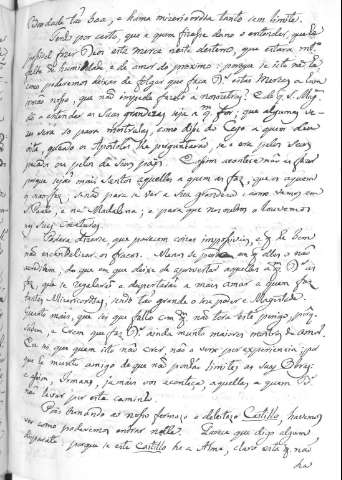 Bondade tão boa, e huma misericordia tanto sem limite.
Tenho por certo, que a quem fizesse damno o entender, que he
possivel fazer Deos esta merce neste desterro, que estará mto
falta de humildade e de amor do proximo: porque se isto não he,
como poderemos deixar de folgar que faça Ds estas Merces a hum
irmão nosso, que não impede fazelo a nosoutras? E de q. S. Mage
de a entender as suas grandezas seja a qm. for; que algumas ve-
zes será só para mostralas, como disse do Cego a quem deu
vista, quando os Apostolos lhe perguntarão, se era pelos seus
peccados ou pelos de seus pays. E assim acontece não as fazer
porque sejão mais Santos aquelles a quem as faz, que os a quem
não faz, senão para se ver a sua grandeza; como vemos em
S. Paulo, e na Madalena; e para que nosoutros o louvemos
em suas Creaturas.
Poderá dizerse, que parecem cousas impossiveis, e q. he bom
não escandelisar os fracos. Menos se perde em q. elles o não
creão, do que em que deixe de aproveitar aquelles a qm. Ds as
faz, que se regalarão e despertarão a mais amar a quem faz
tantas Misericordias, sendo tão grande o seu poder e Magestade.
Quanto mais, que sei que fallo com qm. não terá este perigo, porq.
sabem, e creem que faz Ds ainda muito maiores mostras de amor.
Eu sei, que quem isto não crer, não o verá por experiencia; por
que he muito amigo de que não ponhão limites as suas Obras:
e assim, Irmans, jamais vos aconteça, aquellas, a quem o Sr.
não levar por este caminho.
Pois tornando ao nosso fermozo e deleitozo Castillo, havemos
ver como poderemos entrar nelle. Parece que digo algum
disparate; porque se este Castillo he a Alma, claro está q. não
ha